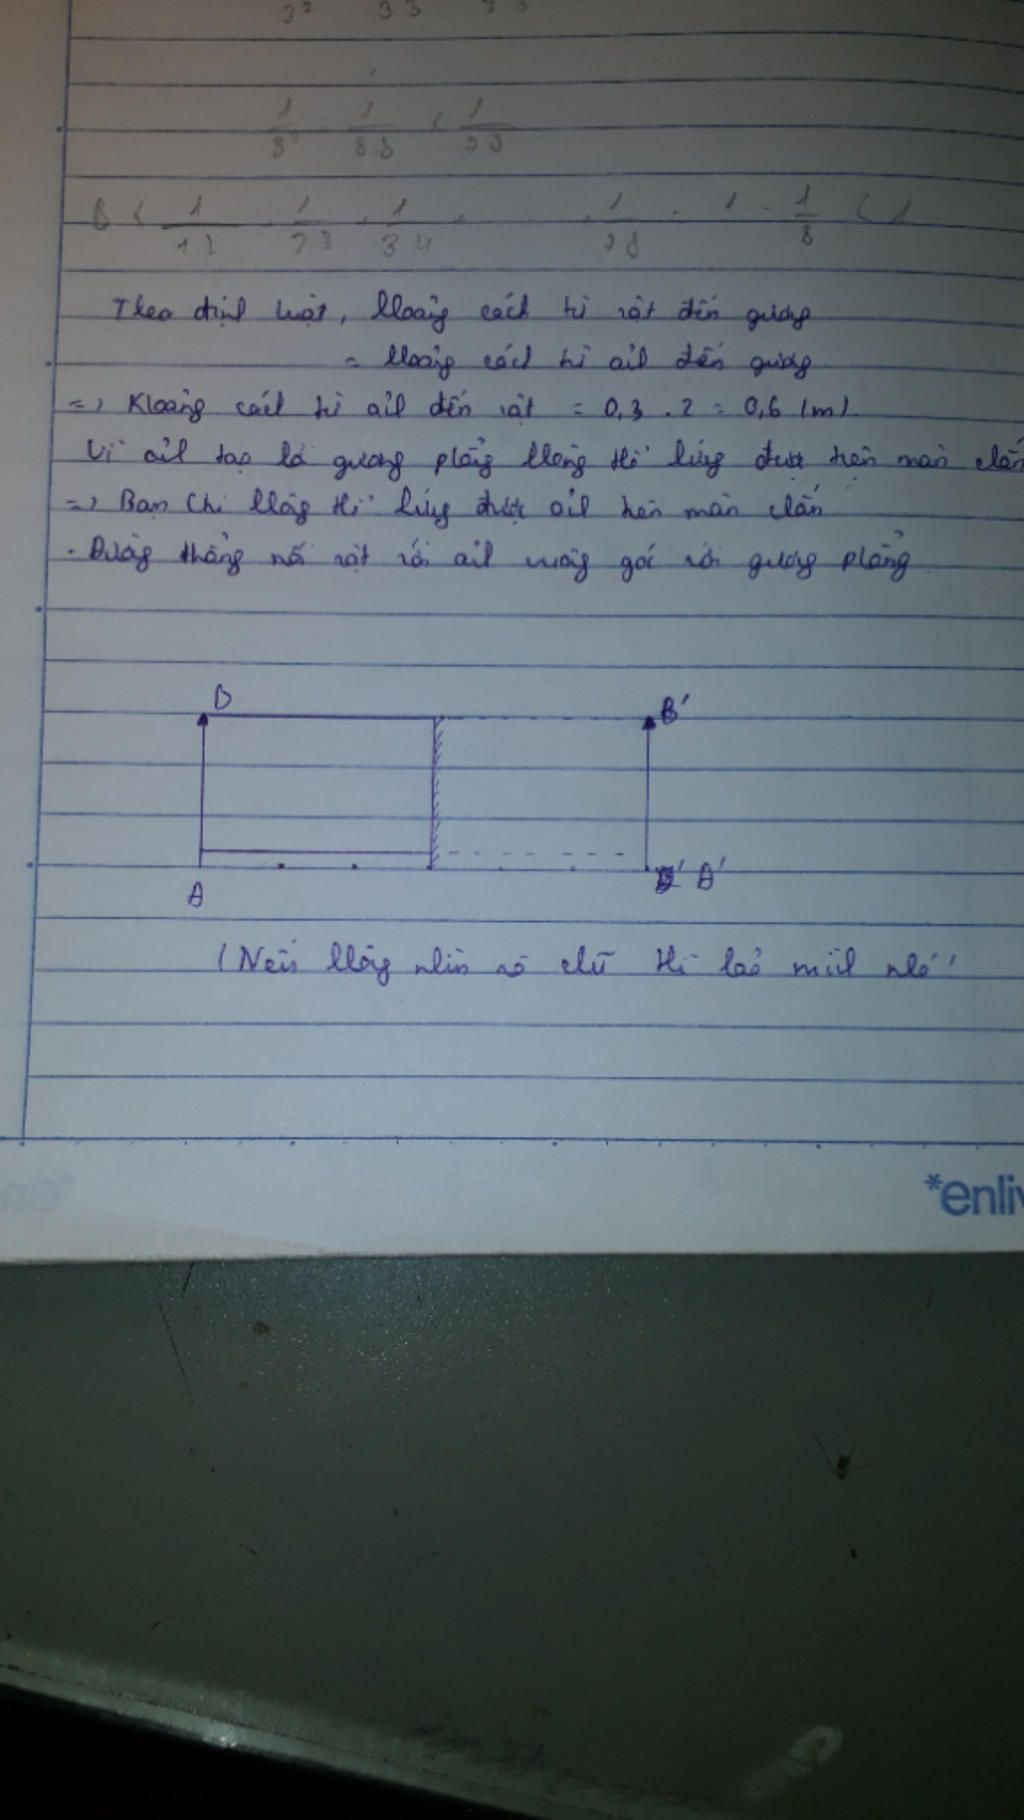 3² 3 3 2 3
1/8² 1/8.8 < 1/78
B < 1/12 . 1/23 . 1/34 . 1/78 . 1 - 1/8 < 1
Theo định luật, khoảng cách từ vật đến gương
= khoảng cách từ ảnh đến gương
=) Khoảng cách từ ảnh đến vật = 0,3 . 2 = 0,6 (m)
Vì ảnh tạo là gương phẳng không thể hứng được trên màn chắn
=) Bạn Chi không thể hứng được ảnh trên màn chắn
. Đường thẳng nối vật với ảnh vuông góc với gương phẳng
B B'
A A'
(Nếu không nhìn rõ chữ thì bảo mình nhé'
*enliv